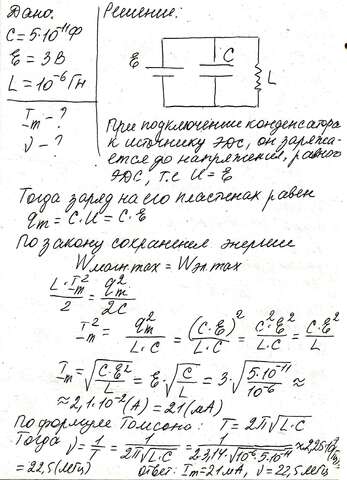 Дано: Решение:
C = 5·10⁻¹¹Ф
Ɛ = 3 В
L = 10⁻⁶ Гн
I_m - ?
ν - ?
Ɛ C L
При подключение конденсатора
к источнику ЭДС, он заряжа-
ется до напряжения, равного
ЭДС, т.е U = Ɛ
Тогда заряд на его пластенах равен
q_m = C·U = C·Ɛ
По закону сохранения энергии
W магн.max = W эл.max
L·I_m²/2 = q_m²/2C
I_m² = q_m²/(L·C) = (C·Ɛ)²/(L·C) = C²·Ɛ²/(L·C) = C·Ɛ²/L
I_m = √(C·Ɛ²/L) = Ɛ·√(C/L) = 3·√(5·10⁻¹¹/10⁻⁶) ≈
≈ 2,1·10⁻²(А) = 21(мА)
По формуле Томсона: T = 2π√(L·C)
Тогда ν = 1/T = 1/(2π√(L·C)) = 1/(2·3,14·√(10⁻⁶·5·10⁻¹¹)) ≈
= 22,5(МГц) Ответ: I_m = 21мА, ν = 22,5МГц